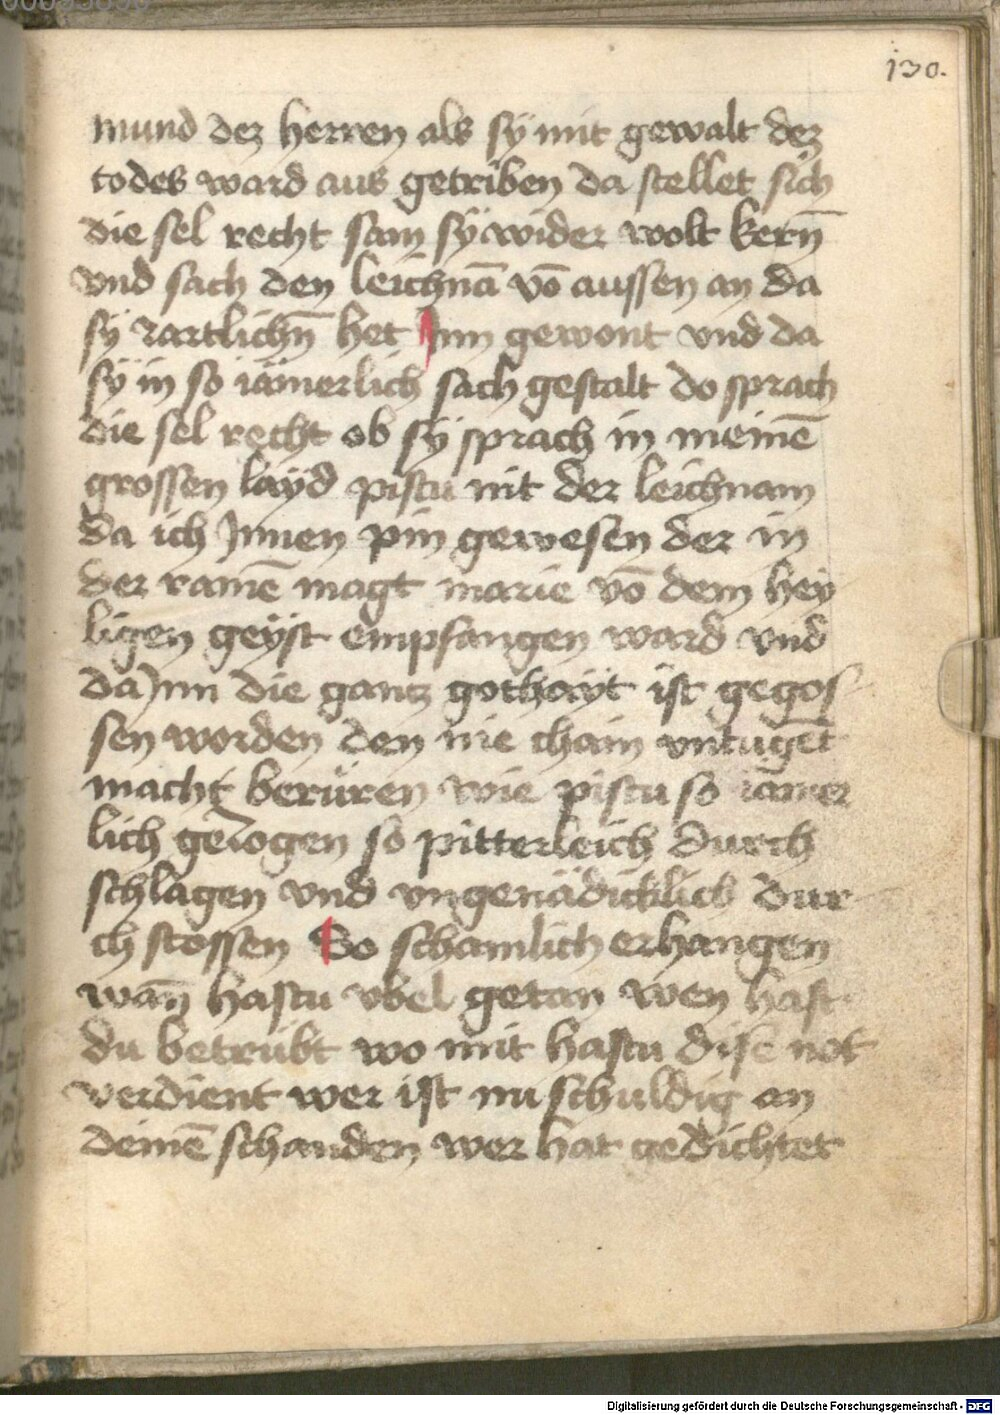 130.
mund dez herren als sÿ mit gewalt dez
todes ward aus getriben da stellet sich
die sel recht sam sÿ wider wolt kern̄
vnd sach den leichnā vō aussen an da
sÿ zartlichn̄ het Jnn gewont vnd da
sÿ in so iämerlich sach gestalt do sprach
die sel recht ob sÿ sprach in meinē
grossen layd pistu nit der leichnam
da ich Jnnen pin gewesen der in
der rainē magt marie vō dem hey
ligen geyst empfangen ward vnd
da Jnn die gantz gothayt ist gegos
sen worden den nie chain vntugēt
macht berüren wie pistu so iämer
lich gezogen so pitterleich durch
schlagen vnd vngenädicklich dur
ch stossen So schamlich erhangen
wan̄ hastu vbel getan wen hast
du betrübt wo mit hastu dise not
verdient wer ist nu schuldig an
deinē schanden wer hat gedichtet
Digitalisierung gefördert durch die Deutsche Forschungsgemeinschaft - DFG